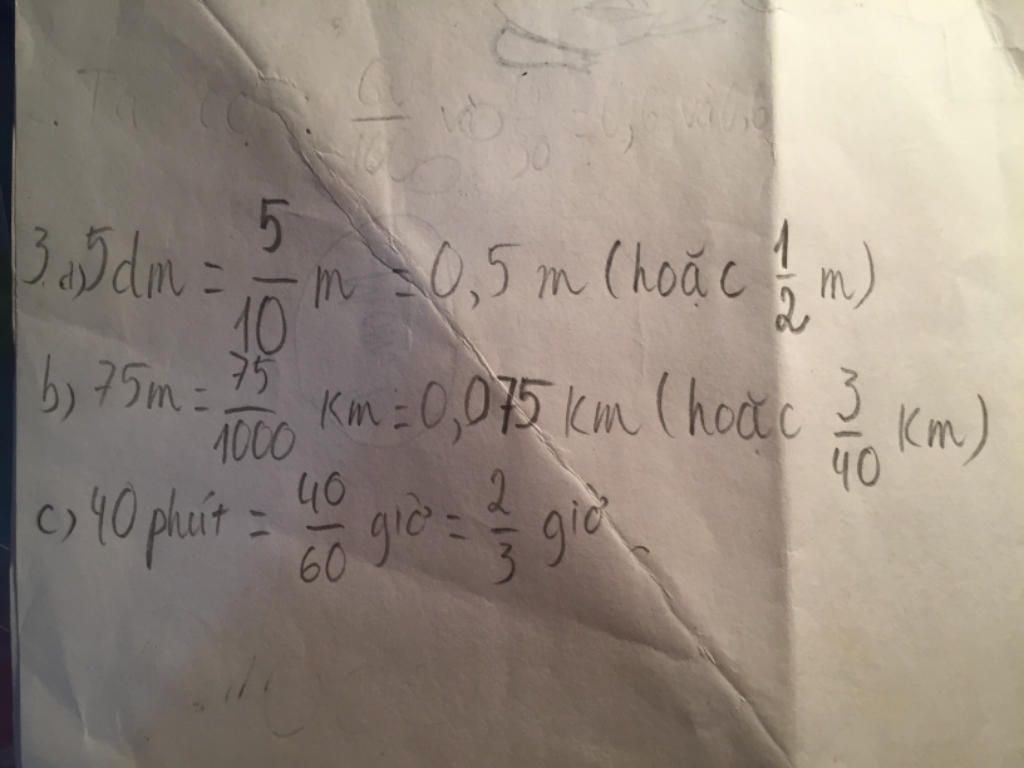 3. a) 5dm = 5/10 m = 0,5 m (hoặc 1/2 m)
b) 75m = 75/1000 km = 0,075 km (hoặc 3/40 km)
c) 40 phút = 40/60 giờ = 2/3 giờ